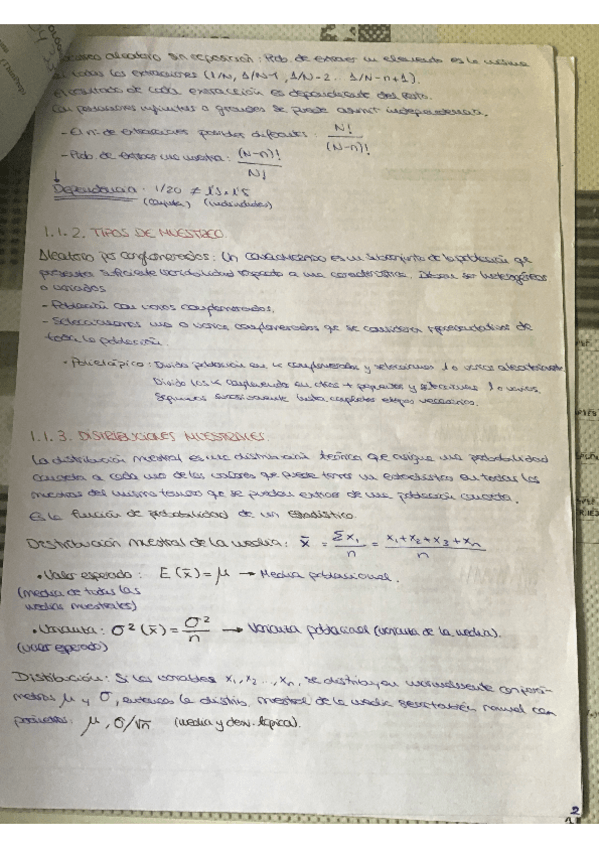 aleatorio sin reposición: Prob. de extraer un elemento es la misma
en todas las extracciones (1/N, 1/N-1, 1/N-2... 1/N-n+1).
El resultado de cada extracción es dependiente del resto.
Con poblaciones infinitas o grandes se puede asumir independencia.
- El nº de extracciones posibles diferentes: N! / (N-n)!
- Prob. de extraer una muestra: (N-n)! / N!
Dependencia: 1/20 ≠ 1/5 x 1/5
(conjunta) (individuales)
1.1.2. TIPOS DE MUESTREO
Aleatorio por conglomerados: Un conglomerado es un subconjunto de la población que
presenta suficiente variabilidad respecto a una característica. Deben ser heterogéneos
o variados
- Población con varios conglomerados.
- Seleccionamos uno o varios conglomerados que se considera representativos de
toda la población.
• Polietápico: Divido población en k conglomerados y seleccionamos 1 o varios aleatoriamente.
Divido los k conglomerados en otros + pequeños y selecciono 1 o varios.
Seguimos sucesivamente hasta completar etapas necesarias.
1.1.3. DISTRIBUCIONES MUESTRALES
La distribución muestral es una distribución teórica que asigna una probabilidad
concreta a cada uno de los valores que puede tomar un estadístico en todas las
muestras del mismo tamaño que se puedan extraer de una población concreta.
Es la función de probabilidad de un estadístico.
Distribución muestral de la media: x̄ = Σx₁ / n = x₁+x₂+x₃+xₙ / n
• Valor esperado: E(x̄) = μ → Media poblacional.
(media de todas las
medias muestrales)
• Varianza: σ²(x̄) = σ² / n → Varianza poblacional (varianza de la media).
(valor esperado)
Distribución: Si las variables x₁, x₂ ..., xₙ, se distribuyen normalmente con pará-
metros μ y σ, entonces la distrib. muestral de la media será también normal con
parámetros: μ, σ/√n (media y desv. típica).
2